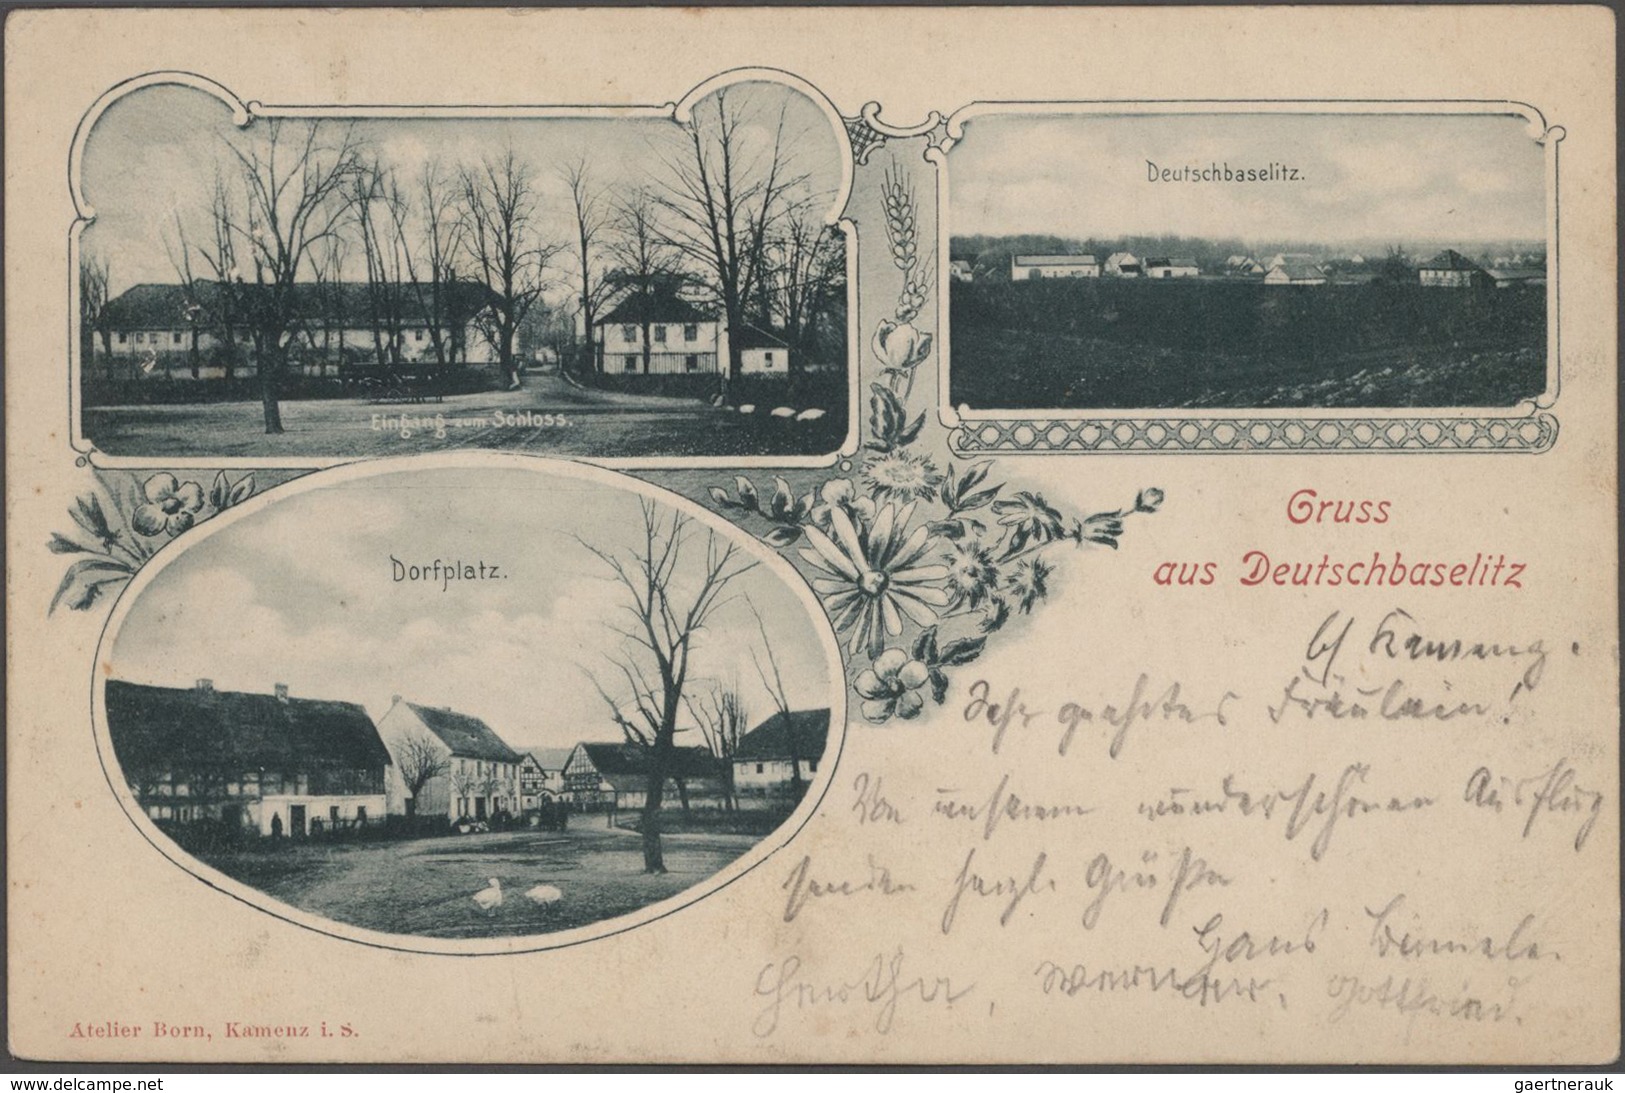 Deutschbaselitz.
Eingang zum Schloss.
Gruss
aus Deutschbaselitz
b/ Kamenz.
Dorfplatz.
Sehr geehrtes Fräulein!
Von unserem wunderschönen Ausflug
senden herzl. Grüße
Hans
Hertha, Werner, Gottfried.
Atelier Born, Kamenz i. S.
www.delcampe.net
gaertnerauk